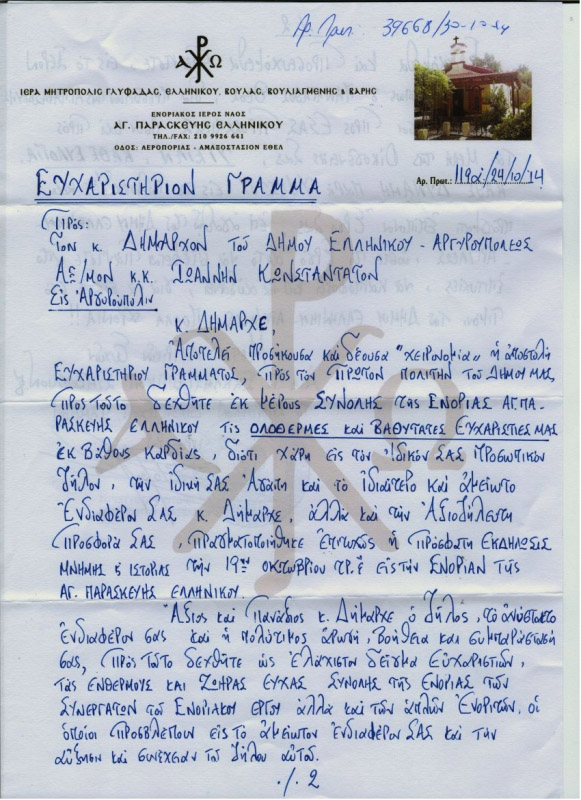 Αρ. Πρωτ. 39668/30-10-14
ΙΕΡΑ ΜΗΤΡΟΠΟΛΙΣ ΓΛΥΦΑΔΑΣ, ΕΛΛΗΝΙΚΟΥ, ΒΟΥΛΑΣ, ΒΟΥΛΙΑΓΜΕΝΗΣ & ΒΑΡΗΣ
ΕΝΟΡΙΑΚΟΣ ΙΕΡΟΣ ΝΑΟΣ
ΑΓ. ΠΑΡΑΣΚΕΥΗΣ ΕΛΛΗΝΙΚΟΥ
ΤΗΛ./FAX: 210 9926 641
ΟΔΟΣ: ΑΕΡΟΠΟΡΙΑΣ - ΑΜΑΞΟΣΤΑΣΙΟΝ ΕΘΕΛ
Αρ. Πρωτ.: 119α/24/10/14
ΕΥΧΑΡΙΣΤΗΡΙΟΝ ΓΡΑΜΜΑ
Πρός:
Τον κ. ΔΗΜΑΡΧΟΝ του ΔΗΜΟΥ ΕΛΛΗΝΙΚΟΥ - ΑΡΓΥΡΟΥΠΟΛΕΩΣ
ΑΞ/ΜΟΝ κ.κ. ΙΩΑΝΝΗΝ ΚΩΝΣΤΑΝΤΑΤΟΝ
Εἰς Ἀργυρούπολιν
κ. ΔΗΜΑΡΧΕ,
Ἀποτελεί προσήκουσα και δέουσα "χειρονομία" ἡ ἀποστολή
ΕΥΧΑΡΙΣΤΗΡΙΟΥ ΓΡΑΜΜΑΤΟΣ, ΠΡΟΣ ΤΟΝ ΠΡΩΤΟΝ ΠΟΛΙΤΗΝ ΤΟΥ ΔΗΜΟΥ ΜΑΣ,
Πρός τοῦτο δεχθῆτε ἐκ μέρους ΣΥΝΟΛΗΣ της ΕΝΟΡΙΑΣ ΑΓ. ΠΑ-
ΡΑΣΚΕΥΗΣ ΕΛΛΗΝΙΚΟΥ τις ΟΛΟΘΕΡΜΕΣ και ΒΑΘΥΤΑΤΕΣ ΕΥΧΑΡΙΣΤΙΕΣ ΜΑΣ
ἐκ βάθους καρδίας, διότι χάρη εἰς τον ἰδικόν ΣΑΣ προσωπικόν
ζῆλον, την ἰδική ΣΑΣ Ἀγάπη και το ἰδιαίτερο και ἀμείωτο
Ἐνδιαφέρον ΣΑΣ κ. Δήμαρχε, ἀλλά και την Ἀξιοζήλευτη
Προσφορά ΣΑΣ, Πραγματοποιήθηκε Επιτυχώς ἡ Πρόσφατη ΕΚΔΗΛΩΣΙΣ
ΜΝΗΜΗΣ & ΙΣΤΟΡΙΑΣ την 19ην ΟΚΤΩΒΡΙΟΥ τρ. ἔ εἰς την ΕΝΟΡΙΑΝ ΤΗΣ
ΑΓ. ΠΑΡΑΣΚΕΥΗΣ ΕΛΛΗΝΙΚΟΥ.
Ἄξιος και Πανάξιος κ. Δήμαρχε ὁ ζῆλός, το ἀνύστακτο
ἐνδιαφέρον σας και ἡ πολύτιμος ἀρωγή, βοήθεια και συμπαράστασή
σας, Πρός τοῦτο δεχθῆτε ὡς ἐλάχιστον δεῖγμα Εὐχαριστιῶν,
τάς ΕΝΘΕΡΜΟΥΣ και ΖΩΗΡΑΣ ΕΥΧΑΣ ΣΥΝΟΛΗΣ της ΕΝΟΡΙΑΣ των
ΣΥΝΕΡΓΑΤΩΝ του ΕΝΟΡΙΑΚΟΥ ΕΡΓΟΥ ἀλλά και των ἁπλῶν Ἐνοριτῶν, οἱ
ὁποίοι Προσβλέπουν εἰς το ἀμείωτον ἐνδιαφέρον ΣΑΣ και την
αὔξησιν και συνέχειαν του ζήλου αὐτοῦ.
./. 2